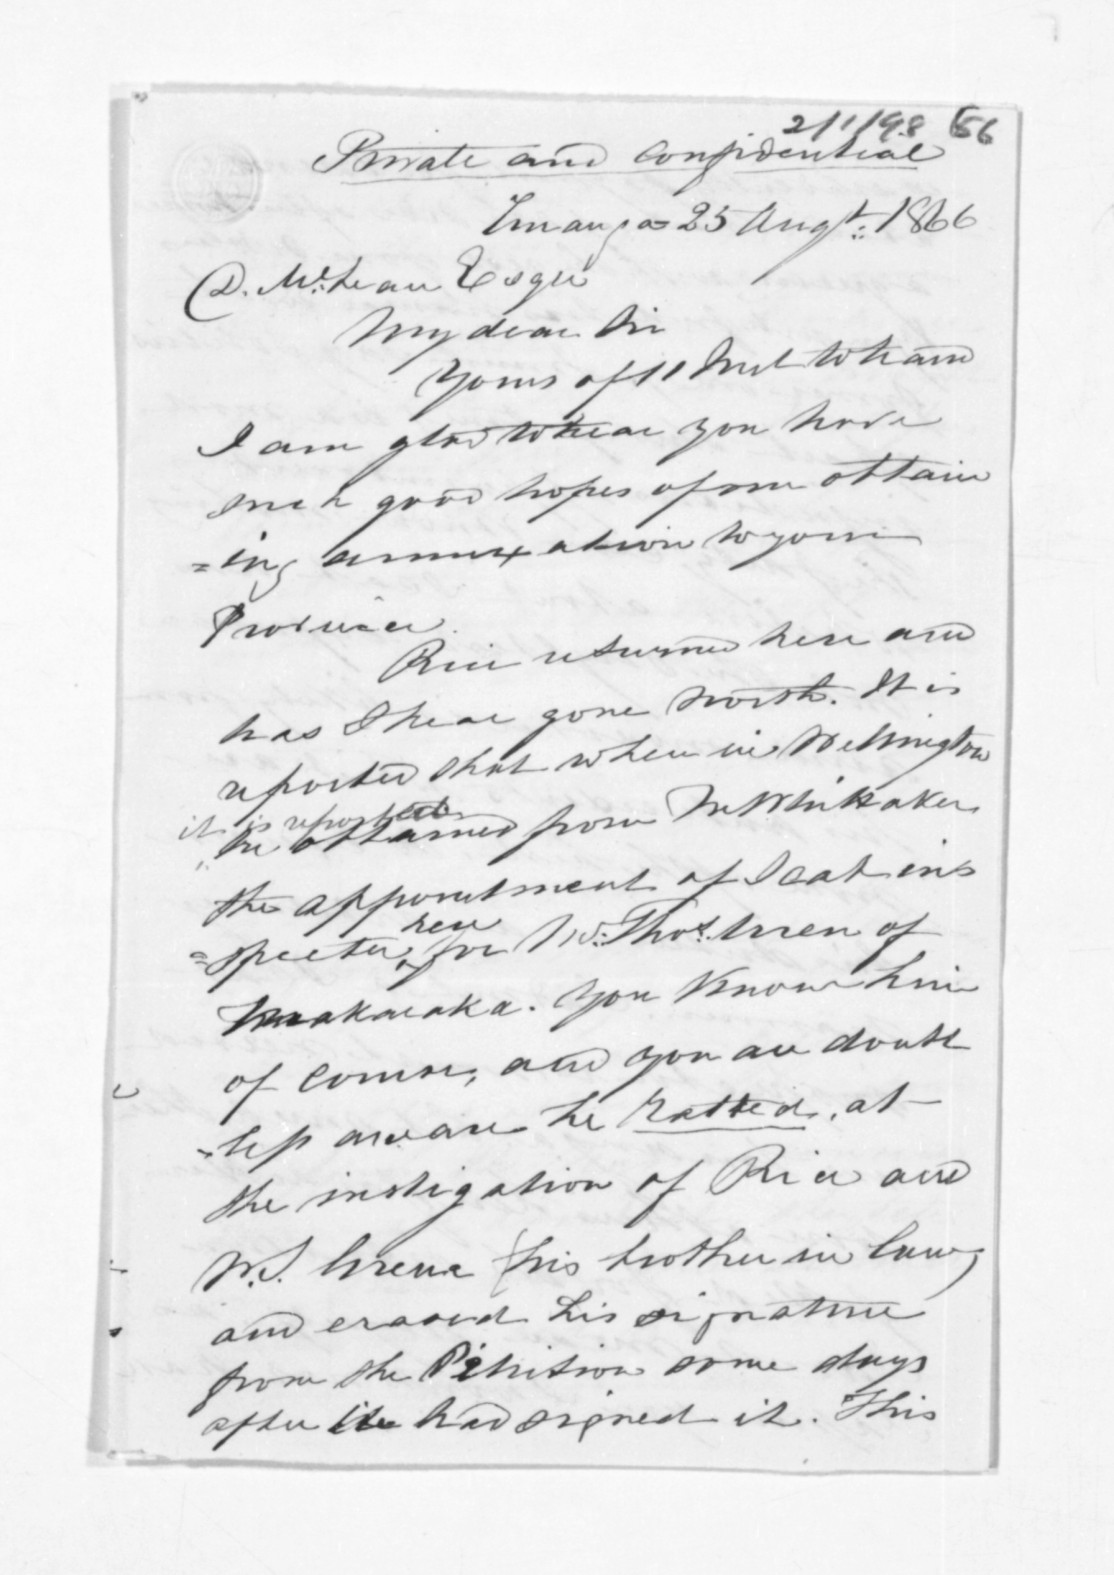 2/1/98 56
Private and confidential
Turanga 25 Augt. 1866
D. McLean Esqre
My dear Sir
Yours of 11 Inst to hand
I am glad to hear you have
such good hopes of our obtain
=ing annexation to your
Province.
Rice returned here and
has I hear gone north. It is
reported that when in Wellington
it is reported
he obtained from Mr Whittaker
the appointment of Scab ins
here
=pector, for Mr. Thos. Uren of
Makaraka. You know him
of course, and you are doubt
-less aware he ratted, at
the instigation of Rice and
W.S. Greene (his brother in law)
and erased his signature
from the Petition some days
after he had signed it. This